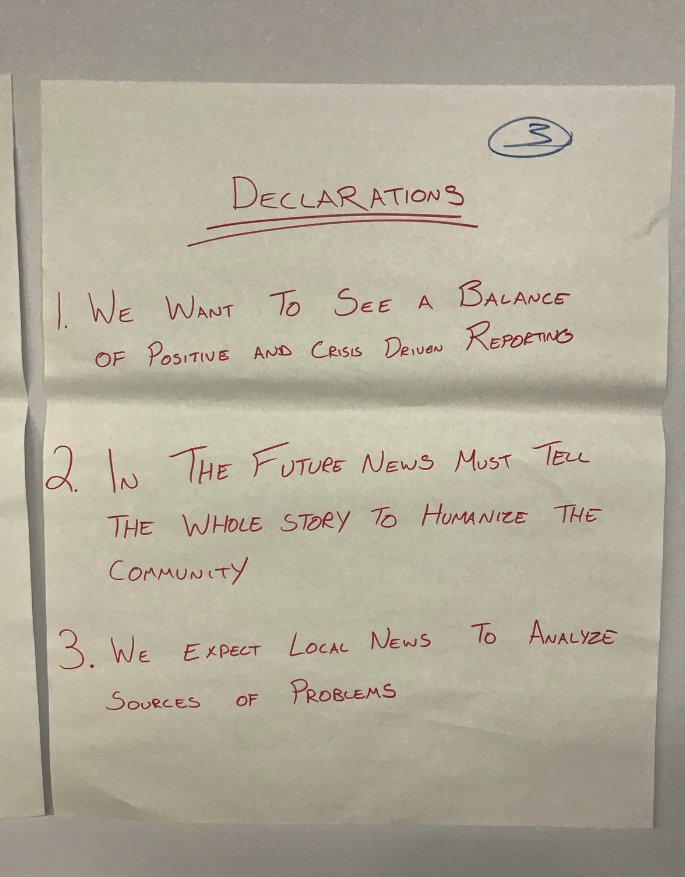 3
DECLARATIONS
1. WE WANT TO SEE A BALANCE
OF POSITIVE AND CRISIS DRIVEN REPORTING
2. IN THE FUTURE NEWS MUST TELL
THE WHOLE STORY TO HUMANIZE THE
COMMUNITY
3. WE EXPECT LOCAL NEWS TO ANALYZE
SOURCES OF PROBLEMS